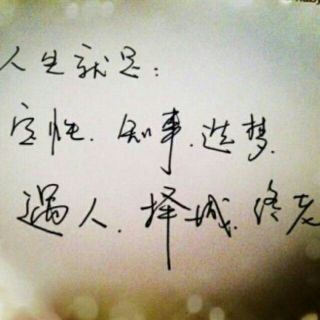 人生就是：
定性.知事.造梦.
遇人.择城.终老